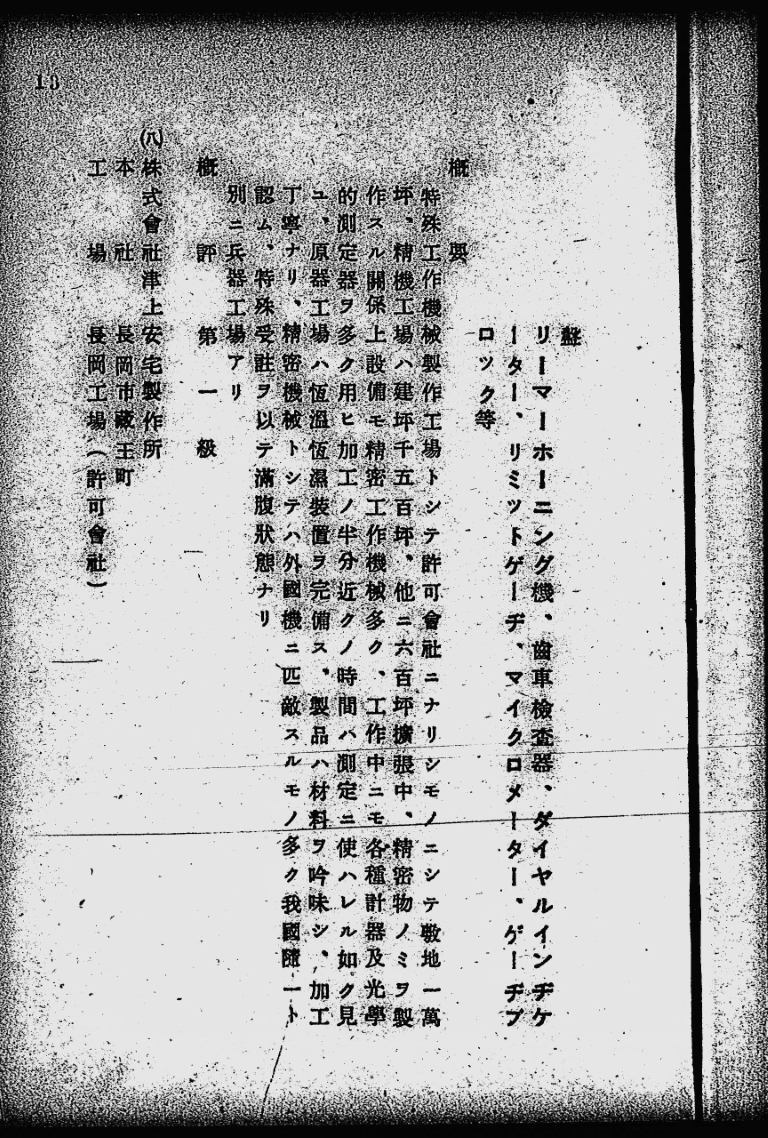 盤
リーマーホーニング機、齒車檢査器、ダイヤルインヂケ
ーター、リミットゲーヂ、マイクロメーター、ゲーヂブ
ロック等
概要
特殊工作機械製作工場トシテ許可會社ニナリシモノニシテ敷地一萬
坪、精機工場ハ建坪千五百坪、他ニ六百坪擴張中、精密物ノミヲ製
作スル關係上設備モ精密工作機械多ク、工作中ニモ各種計器及光學
的測定器ヲ多ク用ヒ加工ノ半分近クノ時間ハ測定ニ使ハレル如ク見
ユ、原器工場ハ恆溫恆濕裝置ヲ完備ス、製品ハ材料ヲ吟味シ、加工
丁寧ナリ、精密機械トシテハ外國機ニ匹敵スルモノ多ク我國隨一ト
認ム、特殊受註ヲ以テ滿腹狀態ナリ
別ニ兵器工場アリ
概評 第一級
(八)株式會社津上安宅製作所
本社 長岡市藏王町
工場 長岡工場(許可會社)
13